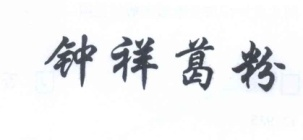 钟祥葛粉